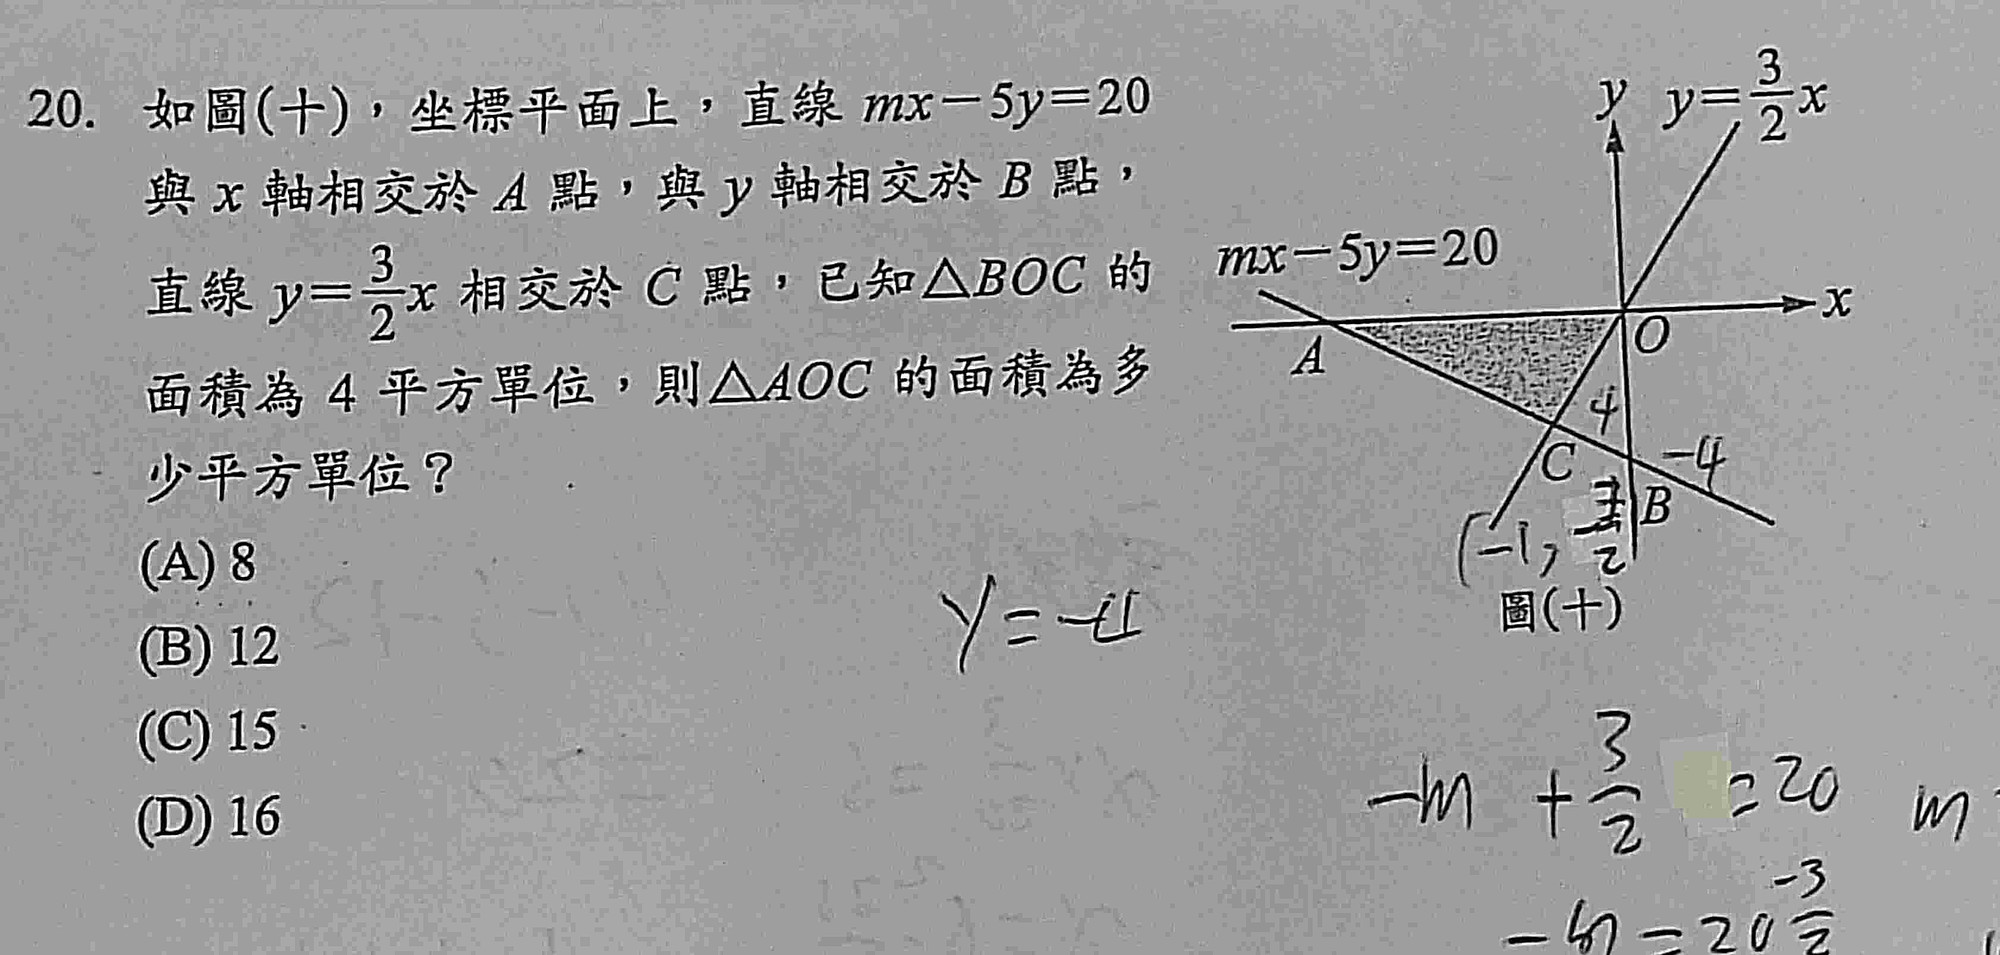 20. 如圖(十)，坐標平面上，直線 mx－5y＝20
與 x 軸相交於 A 點，與 y 軸相交於 B 點，
直線 y＝3/2x 相交於 C 點，已知△BOC 的
面積為 4 平方單位，則△AOC 的面積為多
少平方單位？
(A) 8
(B) 12
(C) 15
(D) 16
y y＝3/2x
mx－5y＝20
x
A
O
4
C
-4
B
(-1,
圖(十)
y = -4
-m + 3/2 = 20 m